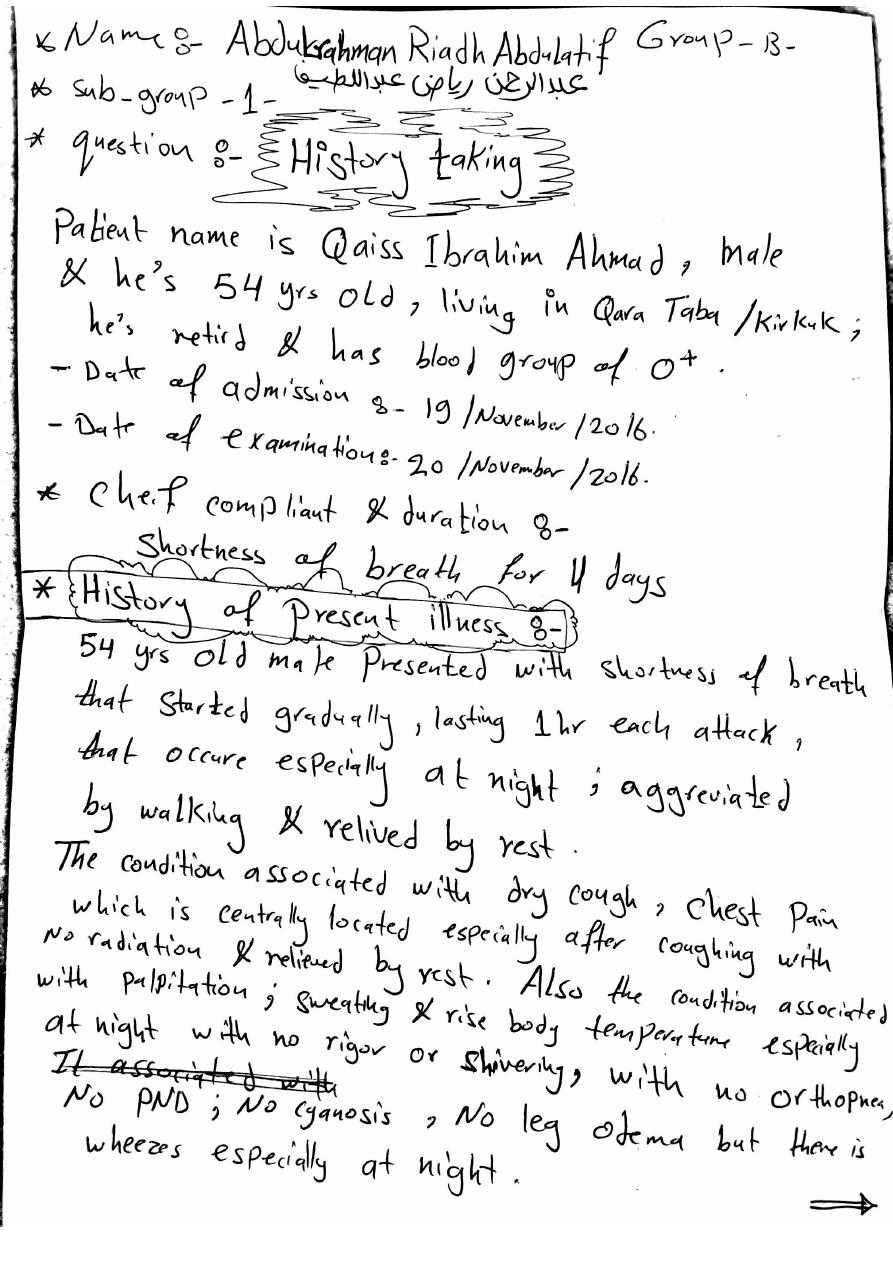 * Name :- Abdulrahman Riadh Abdulatif Group - B -
عبدالرحمن رياض عبداللطيف
* sub-group - 1 -
* question :- History taking
Patient name is Qaiss Ibrahim Ahmad, male
& he's 54 yrs old, living in Qara Taba / Kirkuk ;
he's retird & has blood group of O+ .
- Date of admission :- 19 / November / 2016.
- Date of examination :- 20 / November / 2016.
* Cheif compliant & duration :-
Shortness of breath for 4 days
* History of Present illness :-
54 yrs old male Presented with shortness of breath
that started gradually, lasting 1 hr each attack,
that occure especially at night ; aggreviated
by walking & relived by rest .
The condition associated with dry cough, chest Pain
which is centrally located especially after coughing with
No radiation & relieved by rest. Also the condition associated
with palpitation ; sweating & rise body temperature especially
at night with no rigor or shivering, with no orthopnea,
It associated with
No PND ; No cyanosis , No leg odema but there is
wheezes especially at night .